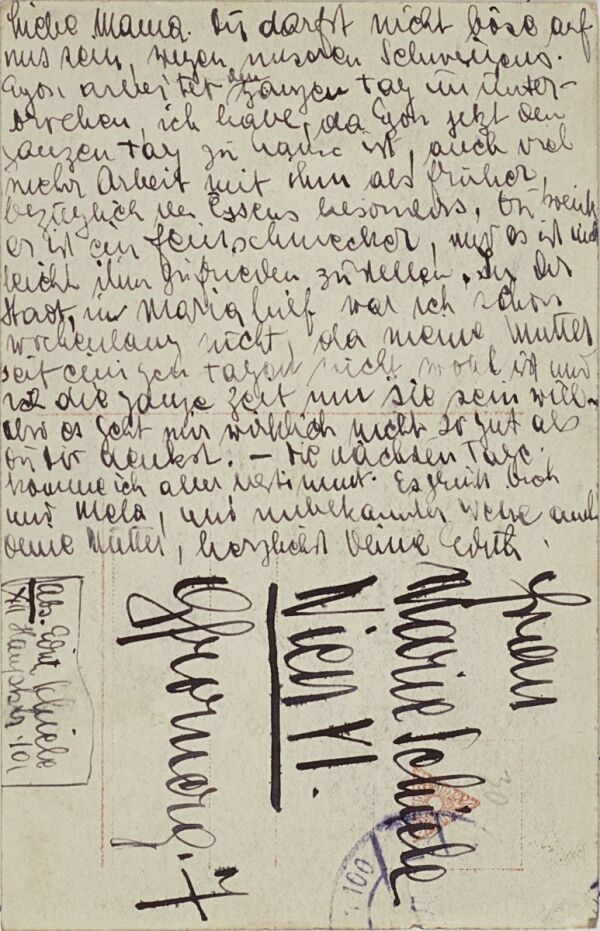 Liebe Mama. Du darfst nicht böse auf
uns sein, wegen unseren Schweigens.
Egon arbeitet den ganzen Tag ununter-
brochen, ich habe, da Egon jetzt den
ganzen Tag zu hause ist, auch viel
mehr Arbeit mit ihm als früher,
bezüglich des Essens besonders, Du weißt
er ist ein Feinschmecker, und es ist nicht
leicht ihn zufrieden zu stellen. In der
Stadt, in Mariahilf war ich schon
wochenlang nicht, da meine Mutter
seit einigen Tagen nicht wohl ist und
ich die ganze Zeit um sie sein will.
also es geht mir wirklich nicht so gut als
Du Dir denkst. — Die nächsten Tage
komme ich aber bestimmt. Es grüßt Dich
und Mela, und unbekannter Weise auch
Deine Mutter, herzlichst Deine Edith.
Frau
Marie Schiele
Wien VI.
Abs. Edith Schiele
XIII
101
100
30